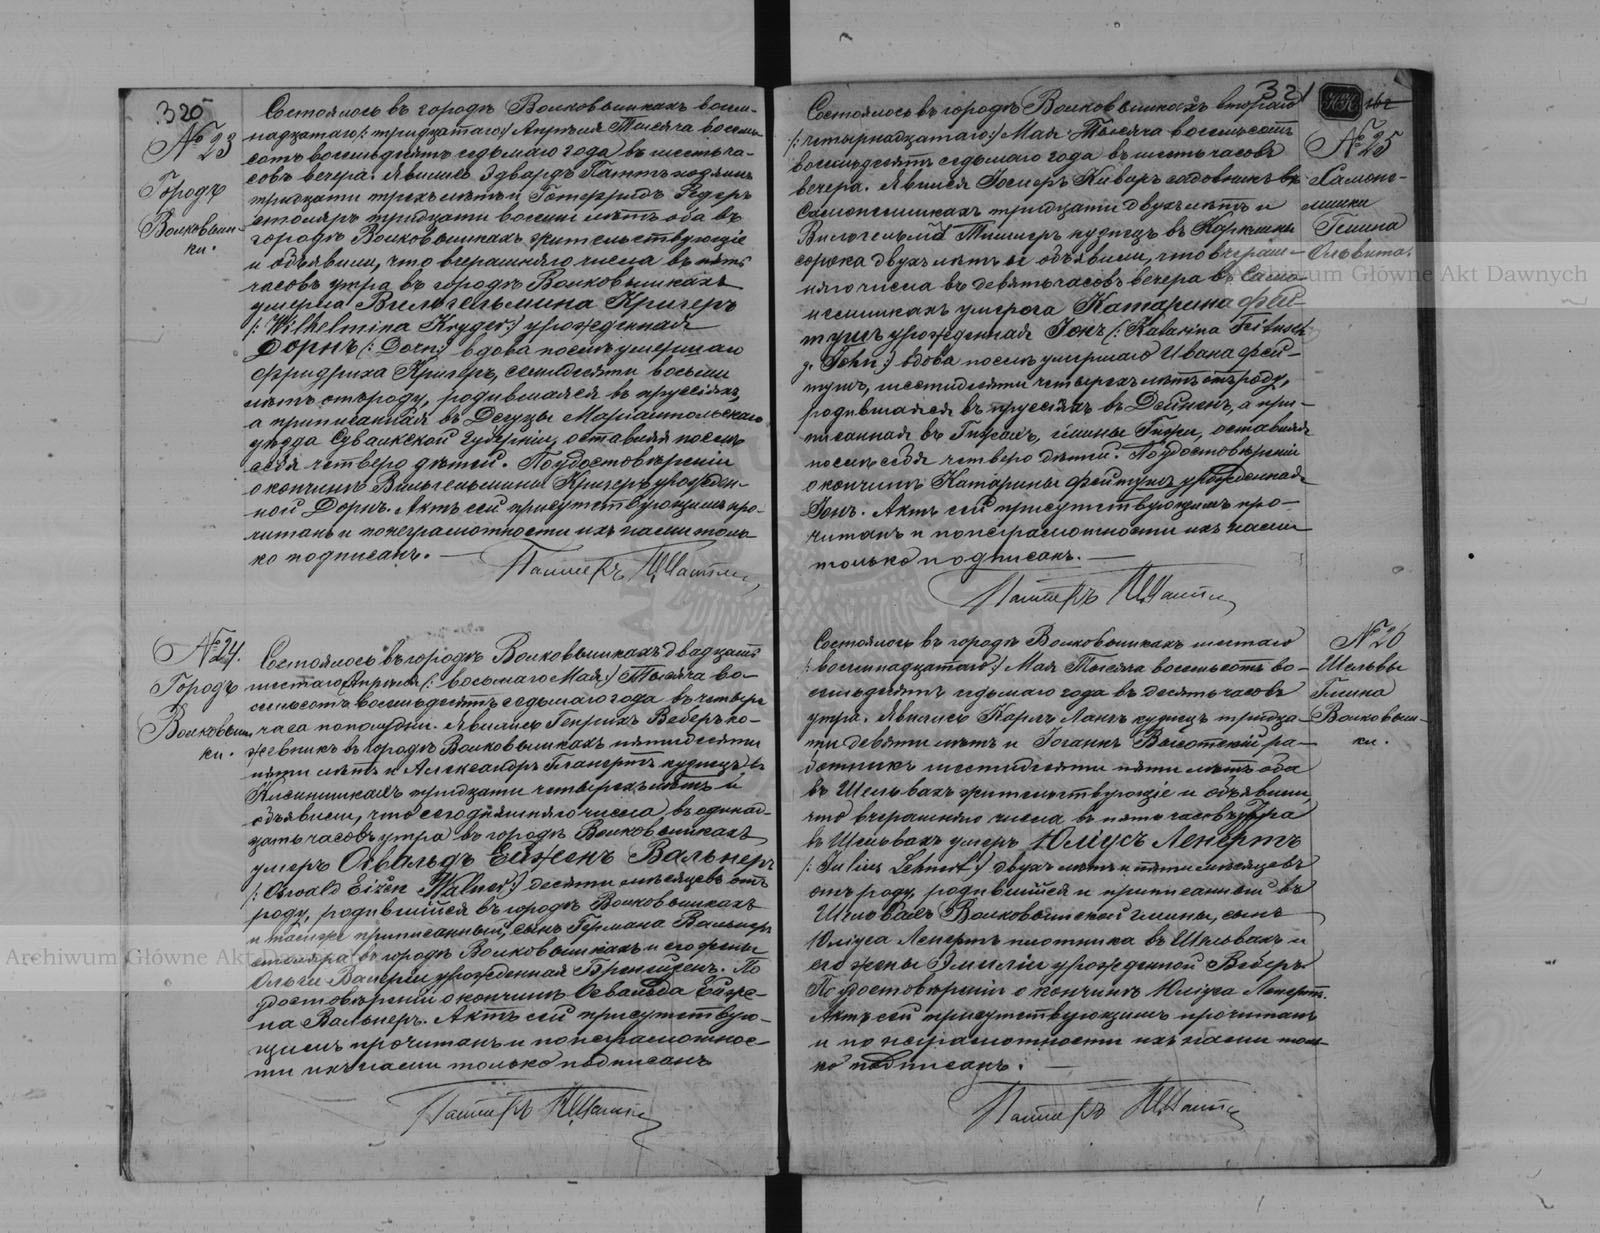 320
№ 23
Городъ
Волковыш-
ки.
Состоялось въ городѣ Волковышкахъ восем-
надцатаго /: тридцатаго :/ Апрѣля Тысяча восемь
сотъ восемьдесятъ седьмаго года въ шесть ча-
совъ вечера. Явились Эдвардъ
тридцати трехъ лѣтъ и Готфридъ
столяръ тридцати восьми лѣтъ оба въ
городѣ Волковышкахъ жительствующіе
и объявили, что вчерашняго числа въ пять
часовъ утра въ городѣ Волковышкахъ
умерла Вильгельмина Кригеръ
/: Wilhelmina Kryger :/ урожденная
Дорнъ /: Dorn :/ вдова послѣ умершаго
Фридриха Кригеръ, семидесяти восьми
лѣтъ отъ роду, родившаяся въ пруссіяхъ,
а приписанная въ Дегуцы Маріампольскаго
уѣзда Сувалкской Губерніи, оставивъ послѣ
себя четверо дѣтей. По удостовѣреніи
о кончинѣ Вильгельмины Кригеръ урожден-
ной Дорнъ. Актъ сей присутствующимъ про-
читанъ и по неграмотности ихъ нами толь-
ко подписанъ.
Пасторъ
№ 24.
Городъ
Волковыш-
ки.
Состоялось въ городѣ Волковышкахъ двадцать
шестаго Апрѣля /: восьмаго Мая :/ Тысяча во-
семьсотъ восемьдесятъ седьмаго года въ четыре
часа пополудни. Явились Генрихъ Веберъ ко-
жевникъ въ городѣ Волковышкахъ пятидесяти
пяти лѣтъ и Александръ кузнецъ въ
тридцати четырехъ лѣтъ и
объявили, что сегодняшняго числа въ одинад-
цать часовъ утра въ городѣ Волковышкахъ
умеръ Освальдъ Ейженъ Вальнеръ
/: Oswald Eiżen Walner :/ десяти мѣсяцевъ отъ
роду, родившійся въ городѣ Волковышкахъ
и также приписанный, сынъ Германа Вальнеръ
столяра въ городѣ Волковышкахъ и его жены
Ольги Валеріи урожденная По
удостовѣреніи о кончинѣ Освальда Ейже-
на Вальнеръ. Актъ сей присутствую-
щимъ прочитанъ и по неграмотнос-
ти ихъ нами только подписанъ
Пасторъ
321
162
№ 25
Самопо-
лишки
Гмина
Состоялось въ городѣ Волковышкахъ втораго
/: четырнадцатаго :/ Мая Тысяча восемьсотъ
восемьдесятъ седьмаго года въ шесть часовъ
вечера. Явился садовникъ въ
тридцати двухъ лѣтъ и
Вильгельмъ кузнецъ въ
сорока двухъ лѣтъ и объявили, что вчераш-
няго числа въ девять часовъ вечера въ Само-
умерла Катарина Фей-
тушъ урожденная Іонъ /: Katarina Feitusch
g. John :/ вдова послѣ умершаго Ивана Фей-
тушъ, шестидесяти четырехъ лѣтъ отъ роду,
родившаяся въ пруссіяхъ въ а при-
писанная въ гмины оставивъ
послѣ себя четверо дѣтей. По удостовѣреніи
о кончинѣ Катарины Фейтушъ урожденная
Іонъ. Актъ сей присутствующимъ про-
читанъ и по неграмотности ихъ нами
только подписанъ.
Пасторъ
№ 26
Шельвы
Гмина
Волковыш-
ки.
Состоялось въ городѣ Волковышкахъ шестаго
/: восемнадцатаго :/ Мая Тысяча восемьсотъ во-
семьдесятъ седьмаго года въ десять часовъ
утра. Явились Карлъ Лангъ кузнецъ тридца-
ти девяти лѣтъ и Іоганнъ ра-
ботникъ шестидесяти пяти лѣтъ оба
въ Шельвахъ жительствующіе и объявили,
что вчерашняго числа въ пять часовъ утра
въ Шельвахъ умеръ Юліусъ Ленертъ
/: Julius Lehnert :/ двухъ лѣтъ и пяти мѣсяцевъ
отъ роду, родившійся и приписанный въ
Шельвахъ Волковышской гмины, сынъ
Юліуса Ленертъ плотника въ Шельвахъ и
его жены Эмиліи урожденной Веберъ
По удостовѣреніи о кончинѣ Юліуса Ленертъ.
Актъ сей присутствующимъ прочитанъ
и по неграмотности ихъ нами толь-
ко подписанъ.
Пасторъ
Archiwum Główne Akt Dawnych